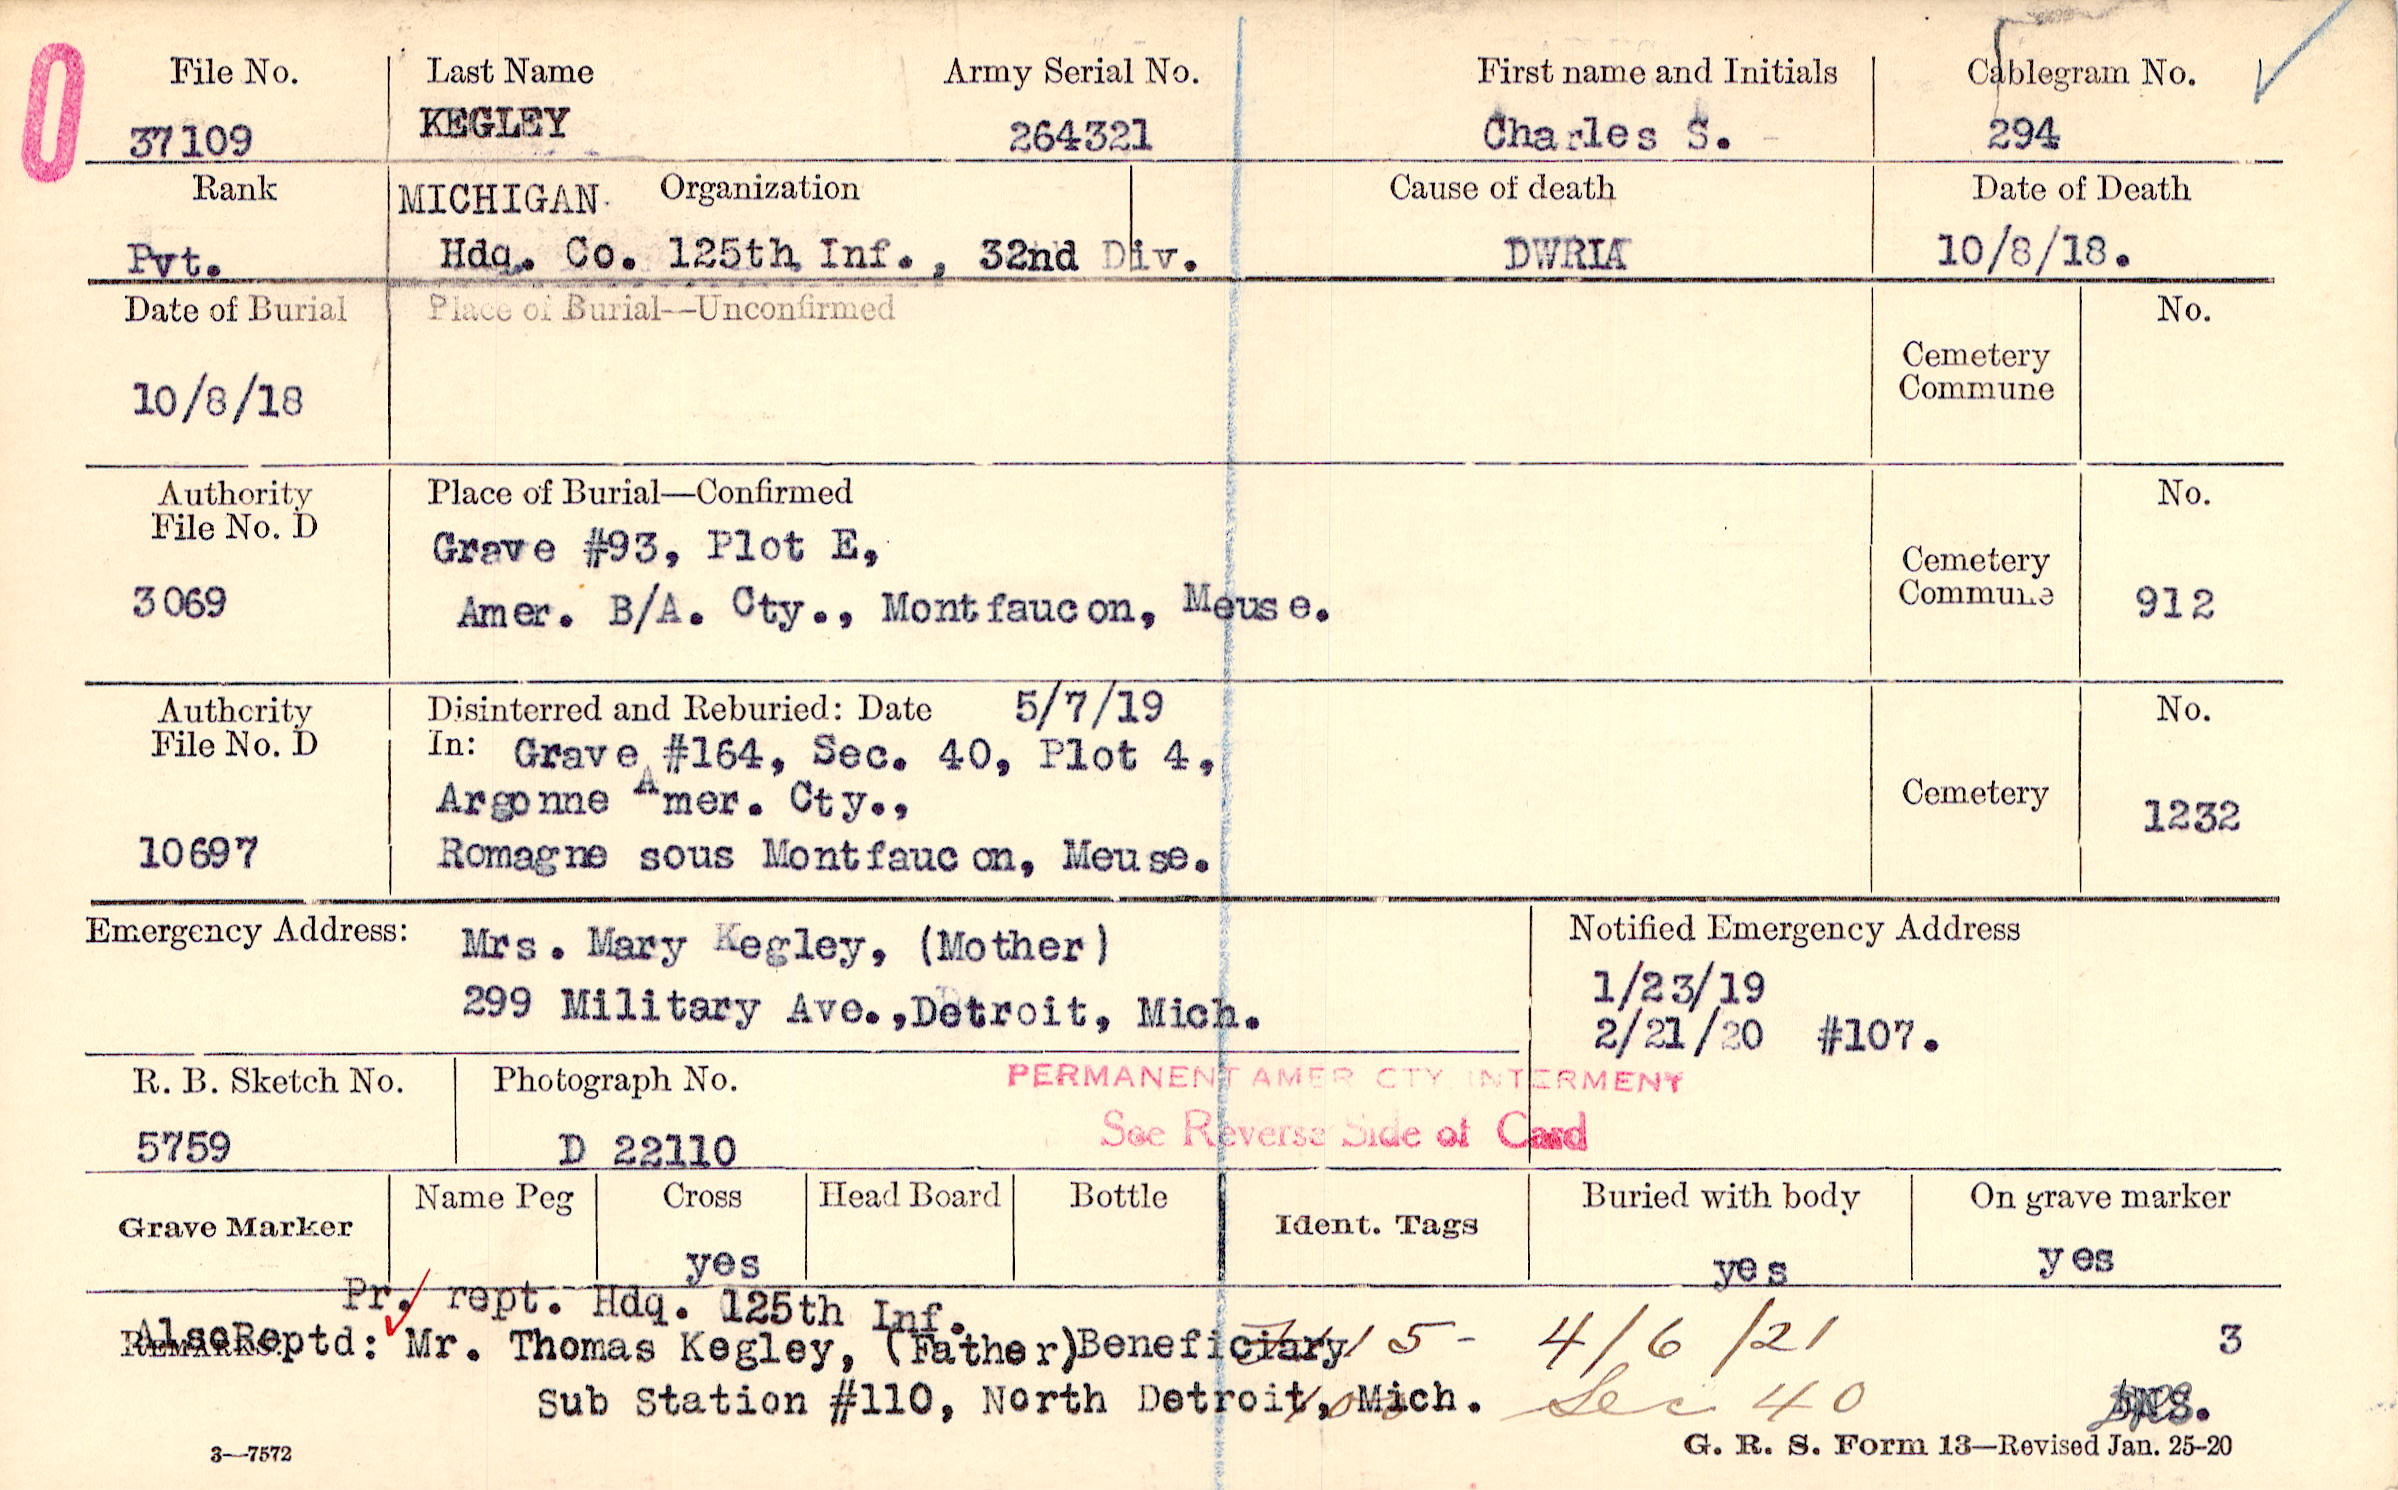 0
File No. Last Name Army Serial No. First name and Initials Cablegram No.
37109 KEGLEY 264321 Charles S. 294
Rank MICHIGAN Organization Cause of death Date of Death
Pvt. Hdq. Co. 125th Inf., 32nd Div. DWRIA 10/8/18.
Date of Burial Place of Burial—Unconfirmed No.
Cemetery
Commune
10/8/18
Authority Place of Burial—Confirmed No.
File No. D Grave #93, Plot E,
Cemetery
3069 Amer. B/A. Cty., Montfaucon, Meuse. Commune 912
Authority Disinterred and Reburied: Date 5/7/19 No.
File No. D In: Grave #164, Sec. 40, Plot 4,
Argonne Amer. Cty., Cemetery 1232
10697 Romagne sous Montfaucon, Meuse.
Emergency Address: Mrs. Mary Kegley, (Mother) Notified Emergency Address
299 Military Ave.,Detroit, Mich. 1/23/19
2/21/20 #107.
R. B. Sketch No. Photograph No. PERMANENT AMER CTY INTERMENT
See Reverse Side of Card
5759 D 22110
Grave Marker Name Peg Cross Head Board Bottle Ident. Tags Buried with body On grave marker
yes yes yes
Pr. rept. Hdq. 125th Inf.
REMARKS: AlsoReptd: Mr. Thomas Kegley, (Father)Beneficiary 5- 4/6/21 3
Sub Station #110, North Detroit, Mich. Sec 40
3—7572 G. R. S. Form 13—Revised Jan. 25-20